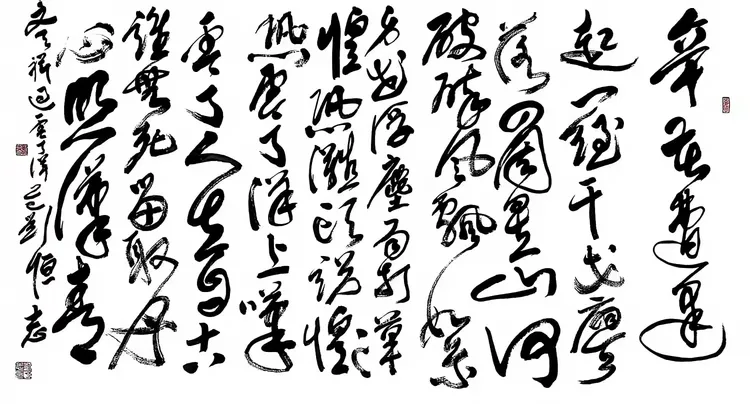 辛苦遭逢
起一經干戈寥
落四周星山河
破碎风飄絮
身世浮塵雨打萍
惶恐灘頭说惶
恐零丁洋上嘆
零丁人生自古
誰無死留取丹
心照漢青
文天祥過零丁洋 劉恒志